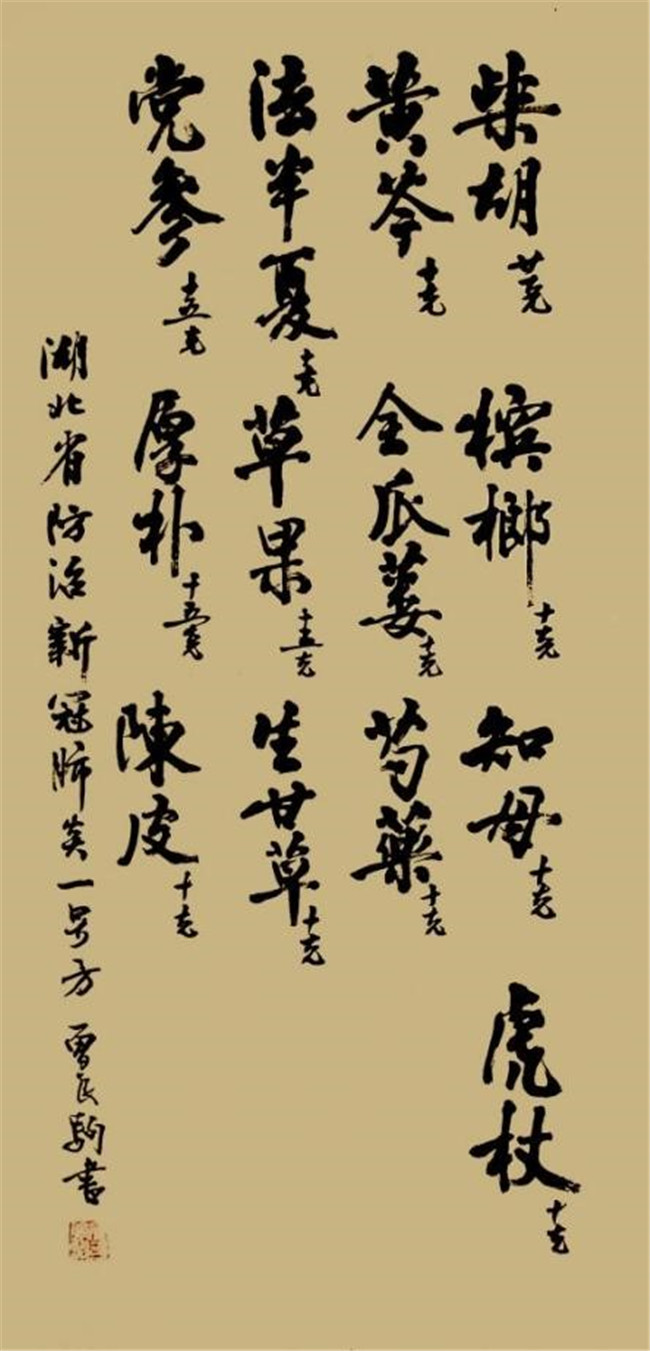 柴胡廿克 檳榔十克 知母十克 虎杖十克
黄芩十克 全瓜蒌十克 芍藥十克
法半夏十克 草果十五克 生甘草十克
党参十五克 厚朴十五克 陳皮十克
湖北省防治新冠肺炎一号方 曾良駒書